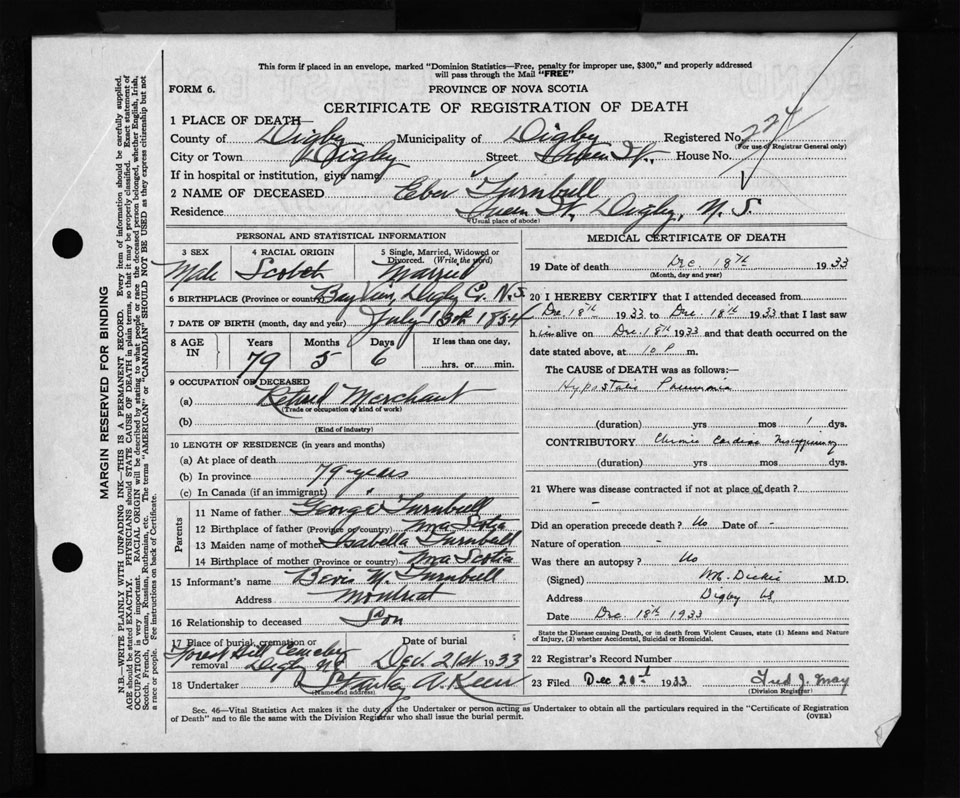 This form if placed in an envelope, marked "Dominion Statistics—Free, penalty for improper use, $300," and properly addressed
will pass through the Mail "FREE"
FORM 6. PROVINCE OF NOVA SCOTIA
CERTIFICATE OF REGISTRATION OF DEATH
1 PLACE OF DEATH—
County of Digby Municipality of Digby Registered No. 224
(For use of Registrar General only)
City or Town Digby Street Queen St., House No.
If in hospital or institution, give name
2 NAME OF DECEASED Eber Turnbull
Residence Queen St, Digby, N. S.
(Usual place of abode)
PERSONAL AND STATISTICAL INFORMATION
3 SEX 4 RACIAL ORIGIN 5 Single, Married, Widowed or
Divorced. (Write the word)
Male Scotch Married
6 BIRTHPLACE (Province or country) Bay View, Digby Co. N.S.
7 DATE OF BIRTH (month, day and year) July 13th 1854
8 AGE IN Years Months Days If less than one day,
79 5 6 hrs. or min.
9 OCCUPATION OF DECEASED
(a) Retired Merchant
(Trade or occupation of kind of work)
(b)
(Kind of industry)
10 LENGTH OF RESIDENCE (in years and months)
(a) At place of death
(b) In province 79 years
(c) In Canada (if an immigrant)
Parents
11 Name of father George Turnbull
12 Birthplace of father (Province or country) Nova Scotia
13 Maiden name of mother Isabella Turnbull
14 Birthplace of mother (Province or country) Nova Scotia
15 Informant's name Turnbull
Address Montreal
16 Relationship to deceased Son
17 Place of burial, cremation or Date of burial
removal Forest Hill Cemetery Digby NS Dec. 21st 1933
18 Undertaker A. Keen
(Name and address)
MEDICAL CERTIFICATE OF DEATH
19 Date of death Dec. 18th 1933
(Month, day and year)
20 I HEREBY CERTIFY that I attended deceased from
Dec. 18th 1933 to Dec. 18th 1933 that I last saw
him alive on Dec. 18th 1933 and that death occurred on the
date stated above, at 10 P. m.
The CAUSE of DEATH was as follows:—
Hypostatic Pneumonia
(duration) yrs mos 1 dys.
CONTRIBUTORY Chronic Cardiac Insufficiency
(duration) yrs mos dys.
21 Where was disease contracted if not at place of death?
-
Did an operation precede death? No Date of -
Nature of operation -
Was there an autopsy? No
(Signed) Dickie M.D.
Address Digby NS
Date Dec. 18th 1933
State the Disease causing Death, or in death from Violent Causes, state (1) Means and Nature
of Injury, (2) whether Accidental, Suicidal or Homicidal.
22 Registrar's Record Number
23 Filed Dec 20th 1933 Fred J.
(Division Registrar)
Sec. 46—Vital Statistics Act makes it the duty of the Undertaker or person acting as Undertaker to obtain all the particulars required in the "Certificate of Registration
of Death" and to file the same with the Division Registrar who shall issue the burial permit. (OVER)
MARGIN RESERVED FOR BINDING
N.B.—WRITE PLAINLY WITH UNFADING INK—THIS IS A PERMANENT RECORD. Every item of information should be carefully supplied.
AGE should be stated EXACTLY. PHYSICIANS should STATE CAUSE OF DEATH in plain terms, so that it may be properly classified. Exact statement of
OCCUPATION is very important. RACIAL ORIGIN will be described by stating to what people or race the deceased person belonged, whether English, Irish,
Scotch, French, German, Russian, Ruthenian, etc. The terms "AMERICAN" or "CANADIAN" SHOULD NOT BE USED as they express citizenship but not
a race or people. See instructions on back of certificate.